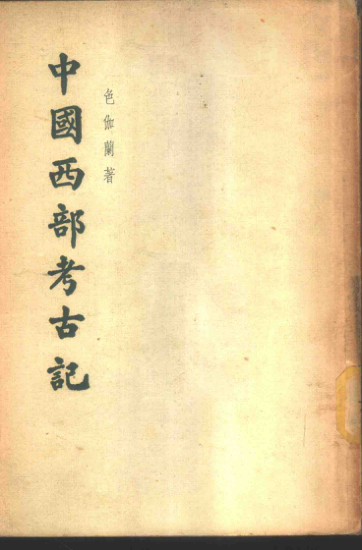 中國西部考古記
色伽蘭著